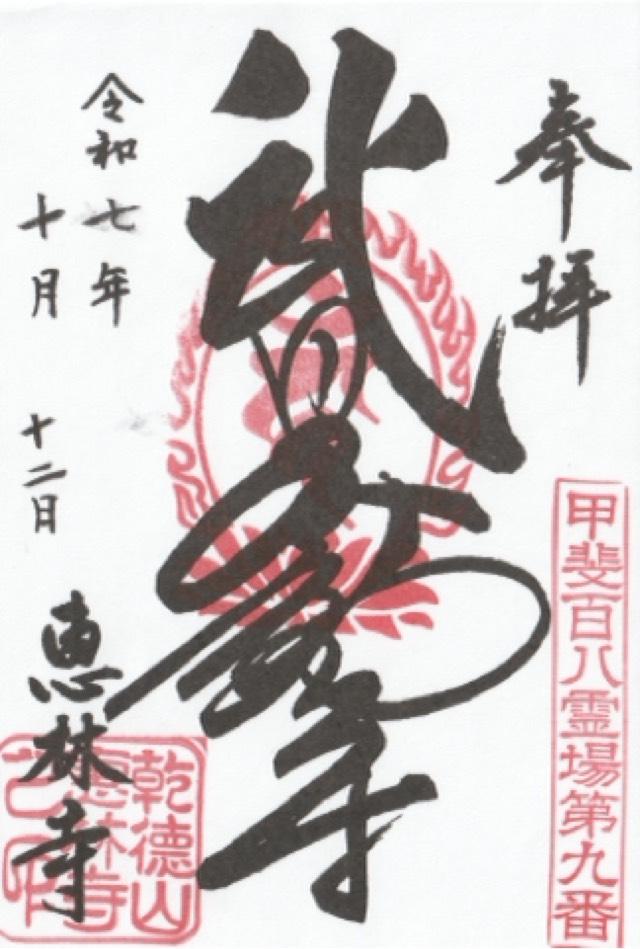 奉拝
甲斐百八霊場第九番
武田不動尊
令和七年
十月十二日
恵林寺
乾徳山
恵林寺
之印